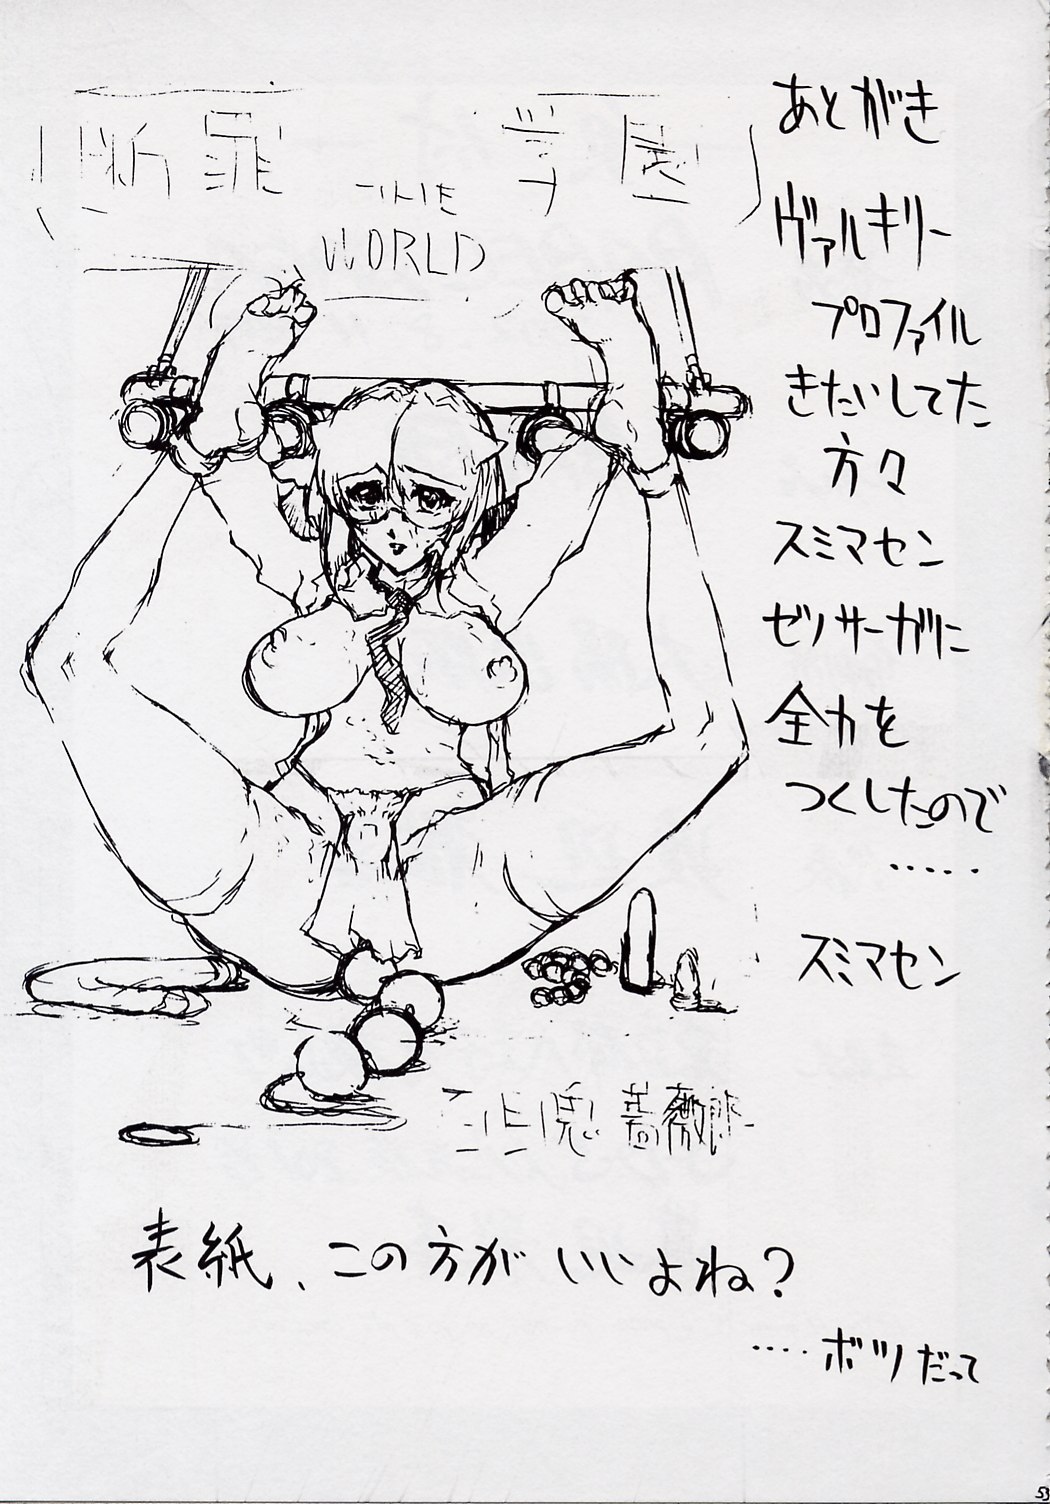 あとがき
ヴァルキリー
プロファイル
きたいしてた
方々
スミマセン
ゼノサーガIに
全力を
つくしたので
・・・・・
スミマセン
断罪 THE 学園
WORLD
薔薇
表紙、この方がいいよね?
・・・・ボツだって
53